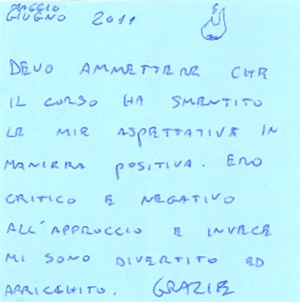 MAGGIO
GIUGNO 2011
DEVO AMMETTERE CHE
IL CORSO HA SMENTITO
LE MIE ASPETTATIVE IN
MANIERA POSITIVA. ERO
CRITICO E NEGATIVO
ALL'APPROCCIO E INVECE
MI SONO DIVERTITO ED
ARRICCHITO. GRAZIE